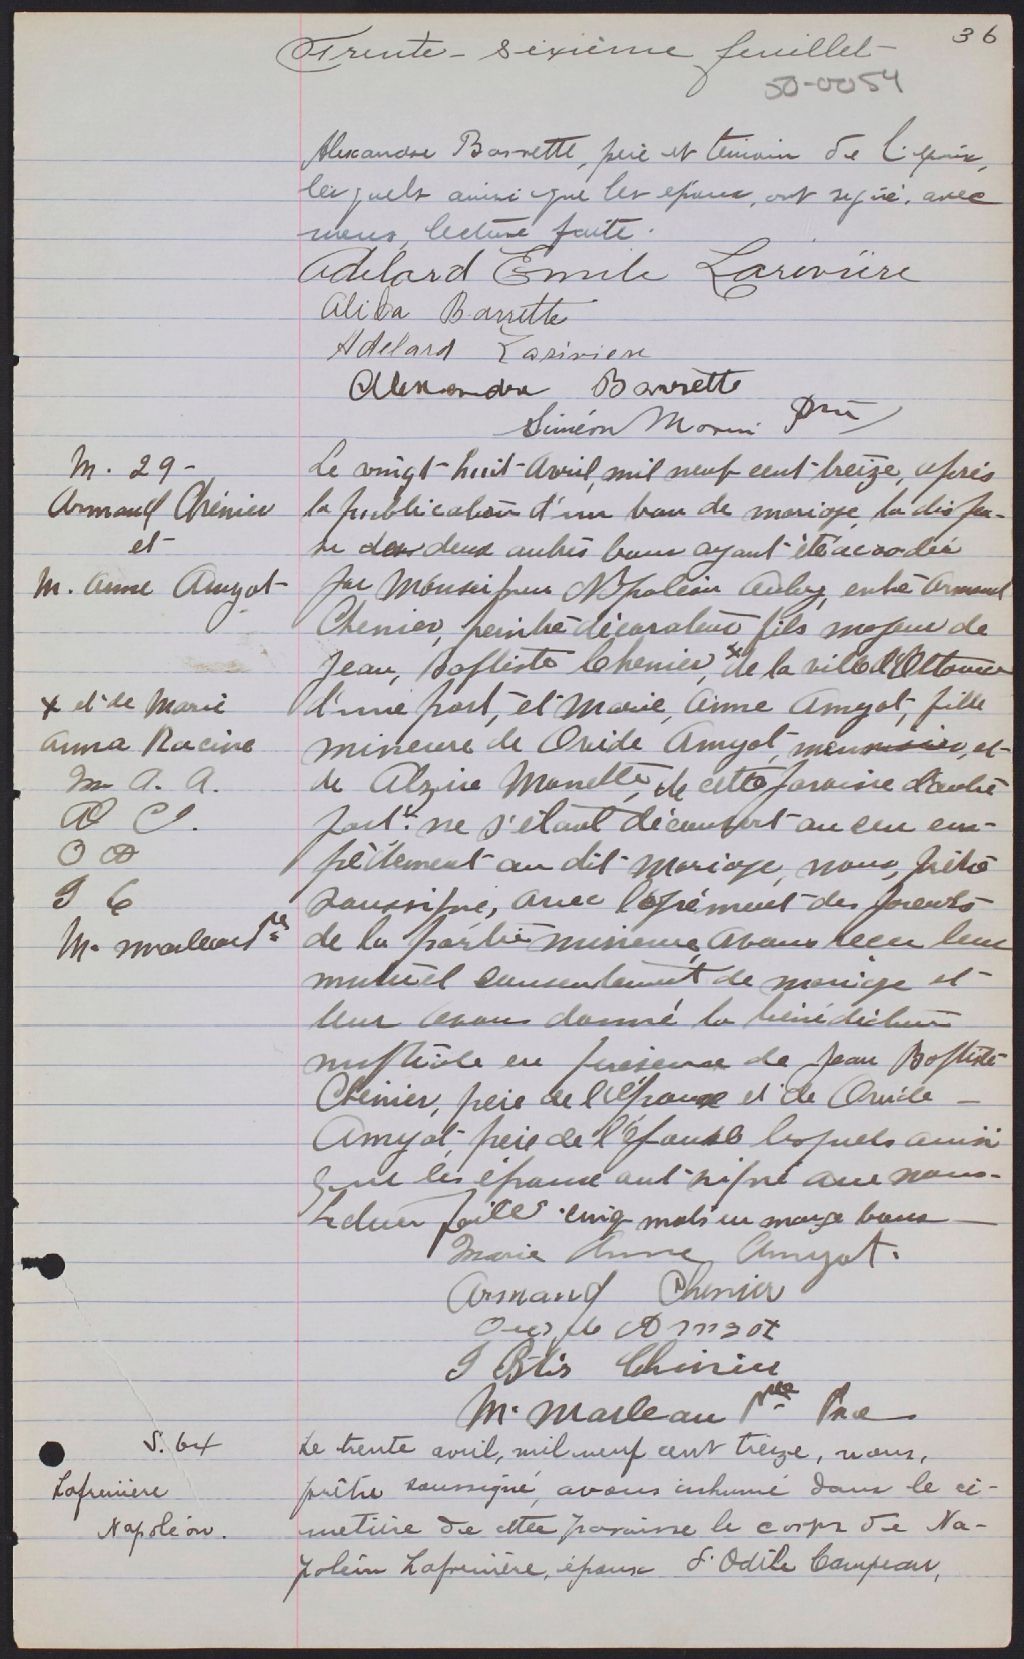 36
Trente-sixième feuillet
50-0054
Alexandre Barrette, père et témoin de l'époux,
lesquels ainsi que les époux, ont signé, avec
nous, lecture faite.
Adelard Emile Larivière
Alida Barrette
Adelard Lariviere
Alexandre Barrette
Siméon Morin Ptre
M. 29-
Armand Chénier
et
M. Anne Amyot
Le vingt-huit-Avril, mil neuf cent treize, après
la publication d'un ban de mariage, la dispen-
se des deux autres bans ayant été accordée
par Monseigneur Napoléon Auby, entre Armand
Chenier, peintre décorateur fils majeur de
Jean, Baptiste Chenier, x de la ville d'Ottawa
x et de Marie
Anna Racine
M. A. A.
A C.
O A
J C
M. Marleau Ptre
d'une part, et Marie, Anne Amyot, fille
mineure de Ovide Amyot, menuisier, et
de Alzire Monette, de cette paroisse d'autre
part: ne s'étant découvert aucun em-
pêchement au dit mariage, nous, prêtre
soussigné, avec l'agrément des parents
de la partie mineure, avons reçu leur
mutuel consentement de mariage et
leur avons donné la bénédiction
nuptiale en présence de Jean Baptiste
Chénier, père de l'époux et de Ovide
Amyot, père de l'épouse lesquels ainsi
que les époux ont signé avec nous.
Lecture faite cinq mots en marge bons
Marie Anne Amyot.
Armand Chenier
Ovide Amyot
J Btis Chénier
M. Marleau Ptre
S. 64
Lafrenière
Napoléon.
Le trente avril, mil neuf cent treize, nous,
prêtre soussigné, avons inhumé dans le ci-
metière de cette paroisse le corps de Na-
poléon Lafrenière, époux d'Odile Campeau,